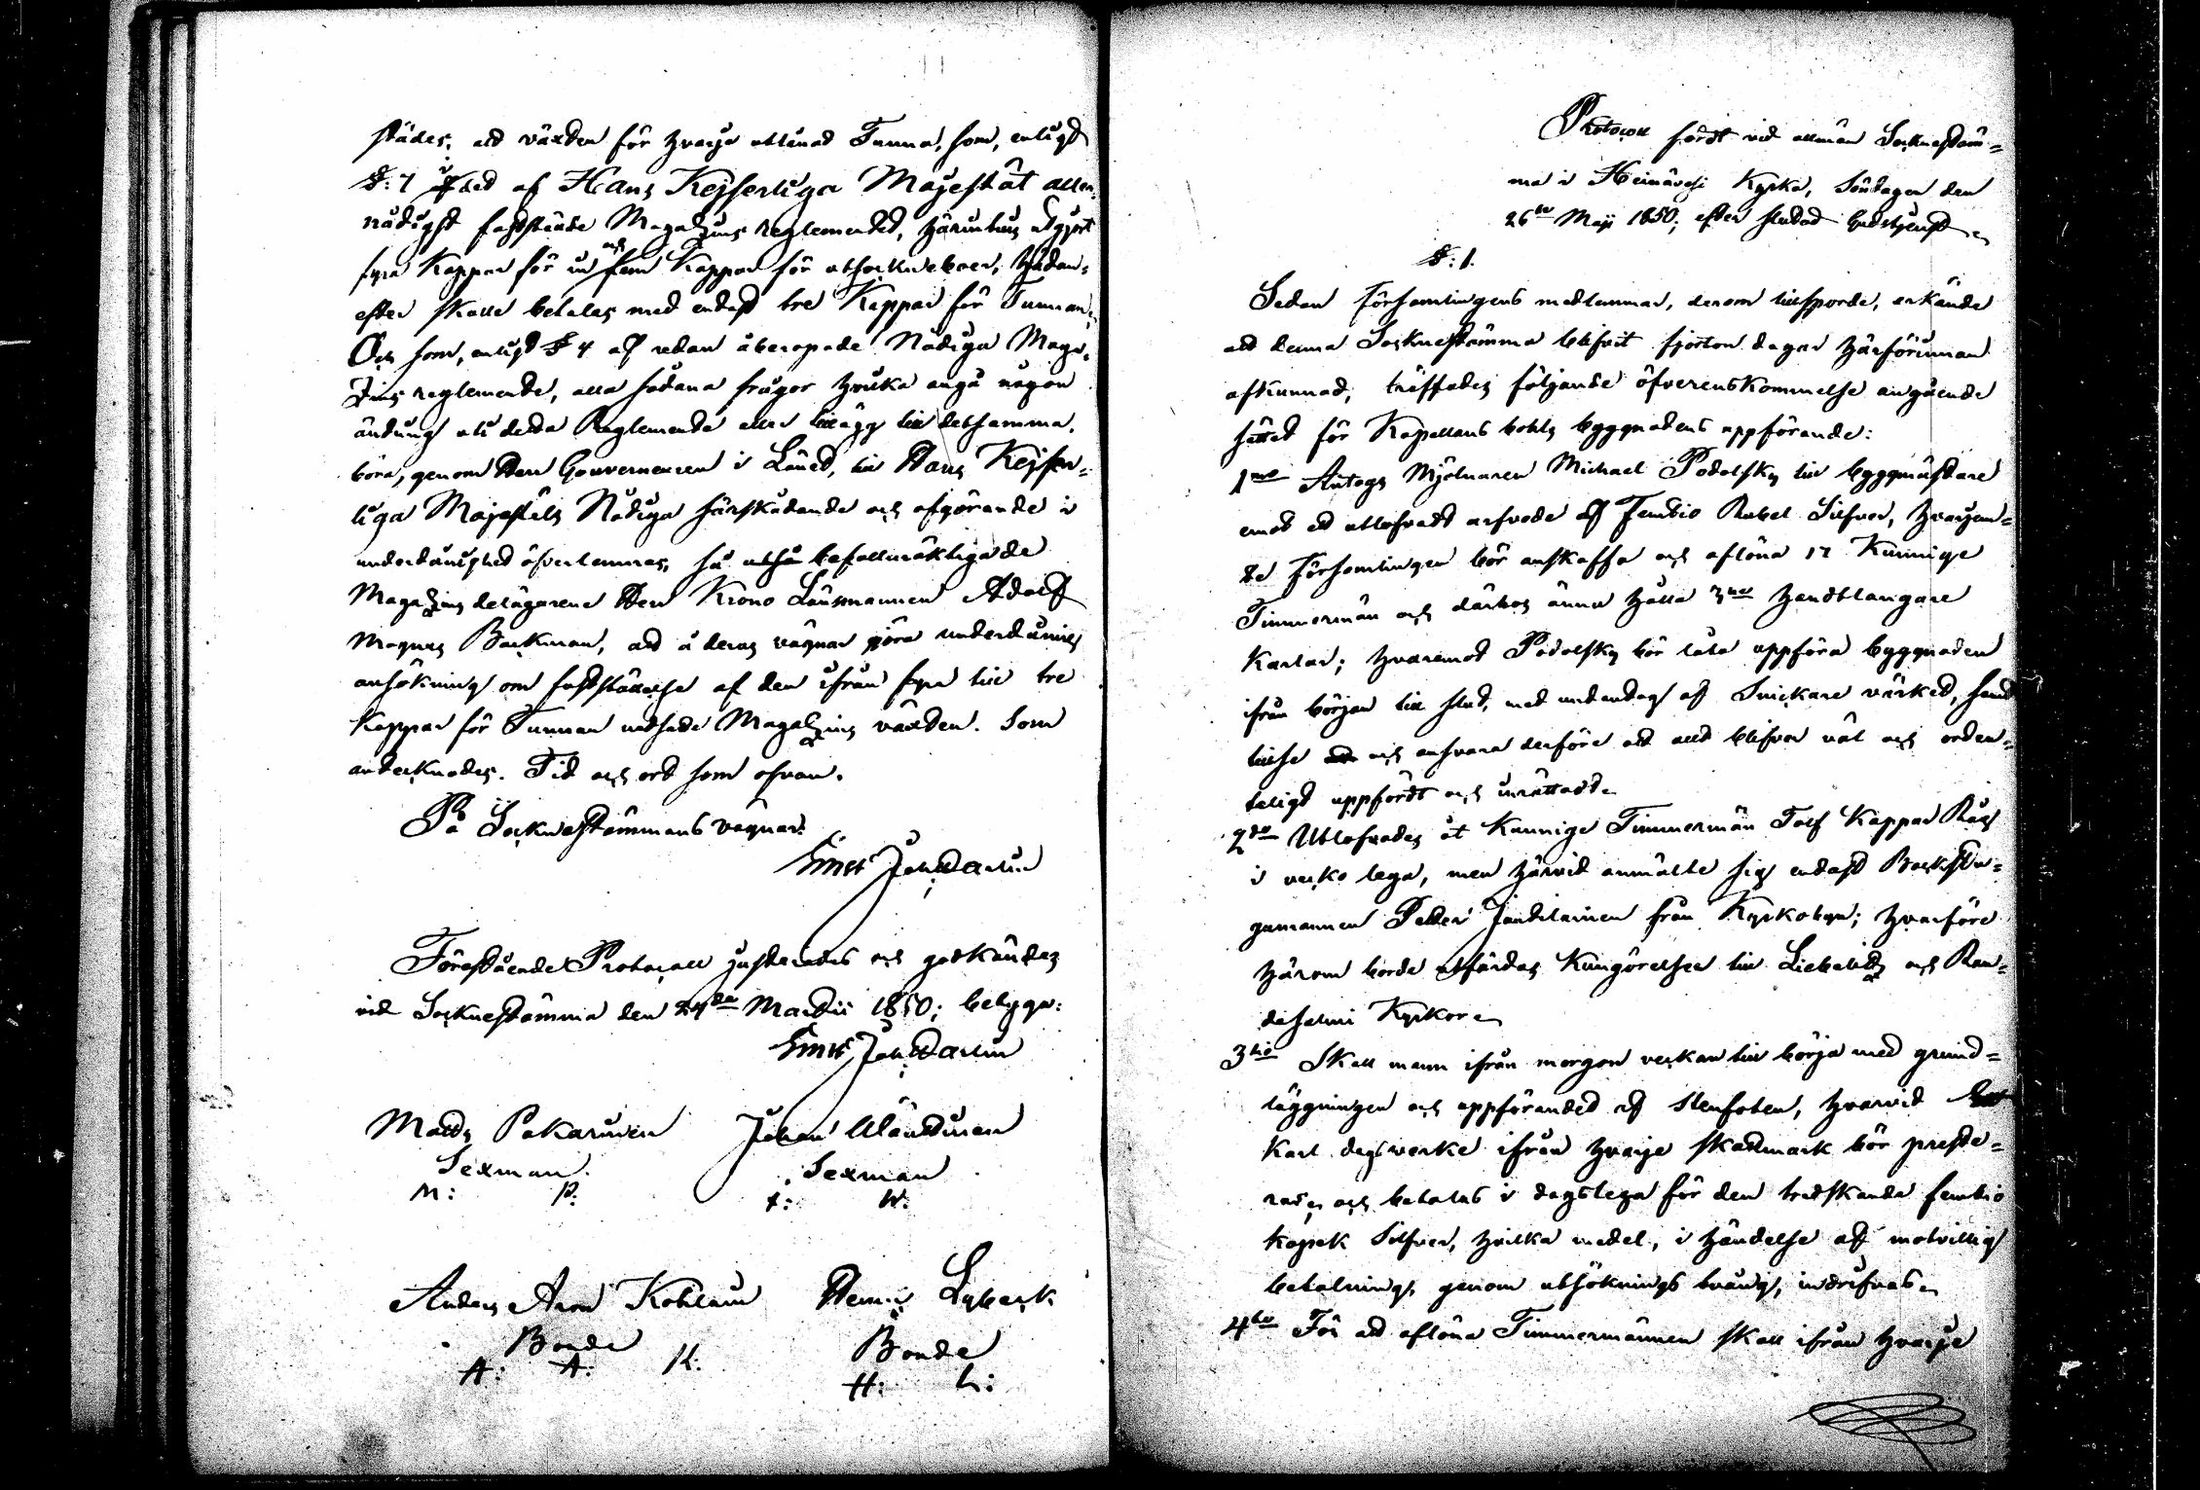 städes, att växten för hvarje utlånad Tunna, som, enligt
§: 7 i det af Hans Kejserliga Majestät aller-
nådigst faststälde Magazins reglementet, härintills utgjort
fyra Kappar för in och fem Kappar för utsockneboer, hädan-
efter skulle betalas med endast tre Kappar för Tunnan.
Och som, enligt § 4 af redan åberopade Nådiga Maga-
zins reglemente, alla sådana frågor hvilka angå någon
ändring uti detta Reglemente eller tillägg till detsamma,
böra, genom Herr Gouverneuren i Länet, till Hans Kejser-
liga Majestäts Nådiga särskådande och afgörande i
underdånighet öfverlemnas, så befullmäktigade
Magazins delägarene Herr Krono Länsmannen Adolf
Magnus Backman, att å deras vägnar göra underdånig
ansökning om fastställelse af den ifrån fyra till tre
Kappar för Tunnan nedsatte Magazins växten. Som
antecknades. Tid och ort som ofvan.
På Socknestämmans vägnar:
Ernst Joh:
Förestående Protocoll justerades och godkändes
vid Socknestämma den 24de Martii 1850; betygar:
Ernst Joh:
Matts Pakarinen Johan Vänttinen
Sexman. Sexman
M: P. J: W.
Anders Aron Kohlain Henric Lyback
Bonde Bonde
A: A: K: H: L:
Protocoll fördt vid allmän Sockneställ-
ma i Heinävesi Kyrka, Söndagen den
26te Maji 1850, efter slutad Gudstjenst.
§: 1.
Sedan Församlingens medlemmar, derom tillsporde, erkände
att denna Socknestämma blifvit fjorton dagar härförinnan
afkunnad, träffades följande öfverenskommelse angående
sättet för Kapellans bohls byggnadens uppförande:
1mo Antogs Mjölnaren Michael Podolsky till byggmästare
emot ett utlofvadt arfvode af Femtio Rubel Silfver, hvarjem-
te Församlingen bör anskaffa och aflöna 12 Kunnige
Timmermän och därhos ännu hålla handtlangare
Karlar; hvaremot Podolsky bör låta uppföra byggnaden
ifrån början till slut, med undantag af Snickare värket, samt
tillse och ansvara derföre att allt blifver väl och orden-
teligt uppfördt och inrättadt.
2do Utlofvades åt Kunnige Timmermän Tolf Kappar Råg
i vecko lega, men härvid anmälte sig endast Backstu-
gumannen Petter Janditainen från Kyrkobyn; hvarföre
härom borde utfärdas Kungörelser till Liebelits och Ran-
tasalmi Kyrkor.
3tio Skall man ifrån morgon veckan till börja med grund-
läggningen och uppförandet af stenfoten, hvarvid
Karl dagsverke ifrån hvarje skattmark bör preste-
ras och betalas i dagslega för den tredskande femtio
kopek Silfver, hvilka medel, i händelse af motvillig
betalning, genom utsöknings tvång, indrifvas.
4to För att aflöna Timmermännen skall ifrån hvarje